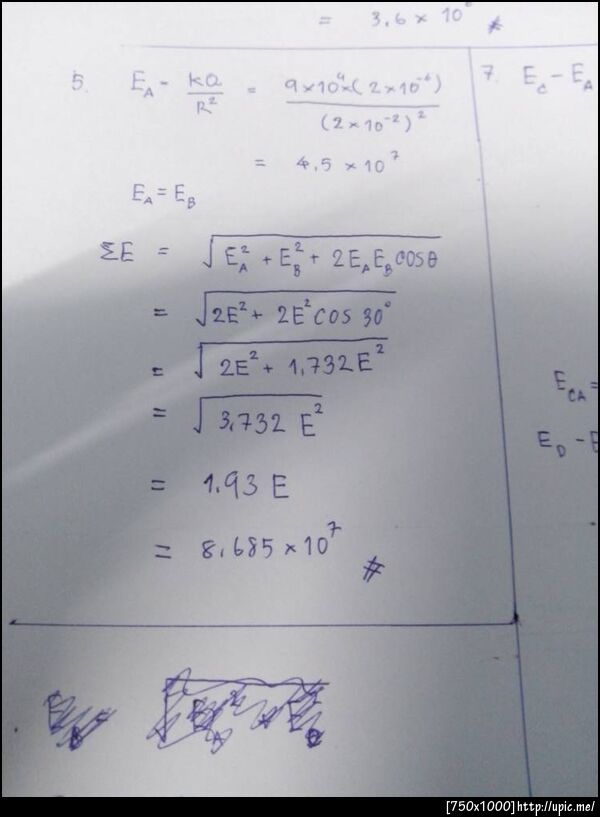 = 3.6 × 10⁶ #
5. E_A - kQ/R² = 9×10⁹×(2×10⁻⁶)/(2×10⁻²)²
= 4.5 × 10⁷
E_A = E_B
ΣE = √(E_A² + E_B² + 2E_A E_B cosθ)
= √(2E² + 2E² cos 30°)
= √(2E² + 1,732E²)
= √(3,732 E²)
= 1.93 E
= 8.685 × 10⁷ #
7. E_C - E_A
E_CA =
E_D - E
[750x1000]http://upic.me/